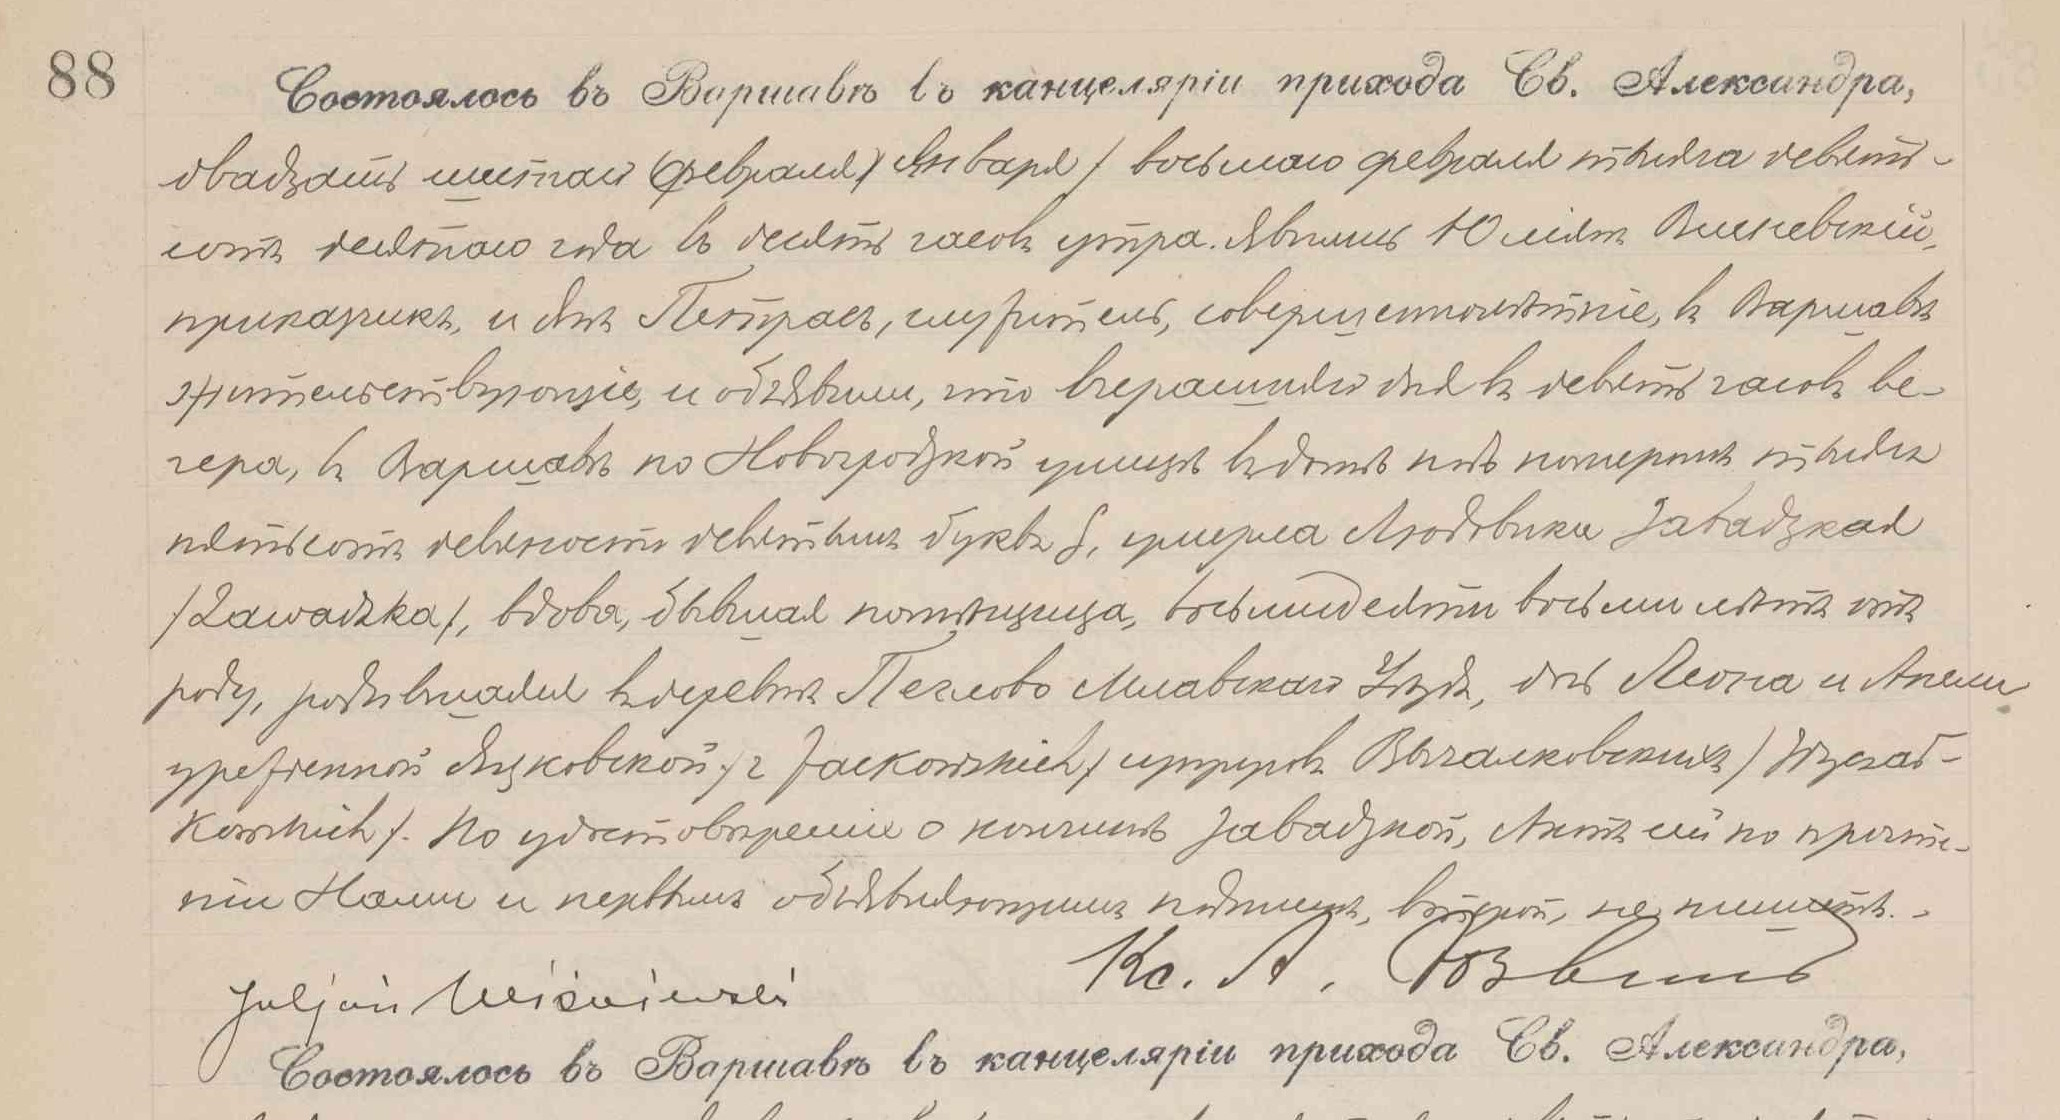 88
Состоялось въ Варшавѣ въ канцеляріи прихода Св. Александра,
двадцать шестаго (февраля) Января / восьмаго февраля тысяча девять-
сотъ десятаго года въ десять часовъ утра. Явились Юліянъ Висневскій,
прикащикъ, и Янъ Петрасъ, служитель, совершеннолѣтніе, въ Варшавѣ
жительствующіе, и объявили, что вчерашняго дня въ девять часовъ ве-
чера, въ Варшавѣ по Новогродзкой улицѣ въ домѣ подъ номеромъ тысяча
пятьсотъ девяносто девятымъ буква S, умерла Людовика Завадзкая
/Zawadzka/, вдова, бывшая помѣщица, восьмидесяти восьми лѣтъ отъ
роду, родившаяся въ деревнѣ Пеглово Млавскаго Уѣзда, дочь Леона и Анели
урожденной Яцковской /z Jackowskich/ супруговъ Вычалковскихъ / Wyczał-
kowskich /. По удостовѣреніи о кончинѣ Завадзкой, Актъ сей по прочте-
ніи Нами и первымъ объявляющимъ подписанъ, второй, не пишетъ. -
Кс. А.
Juljan Wiśniewski
Состоялось въ Варшавѣ въ канцеляріи прихода Св. Александра,